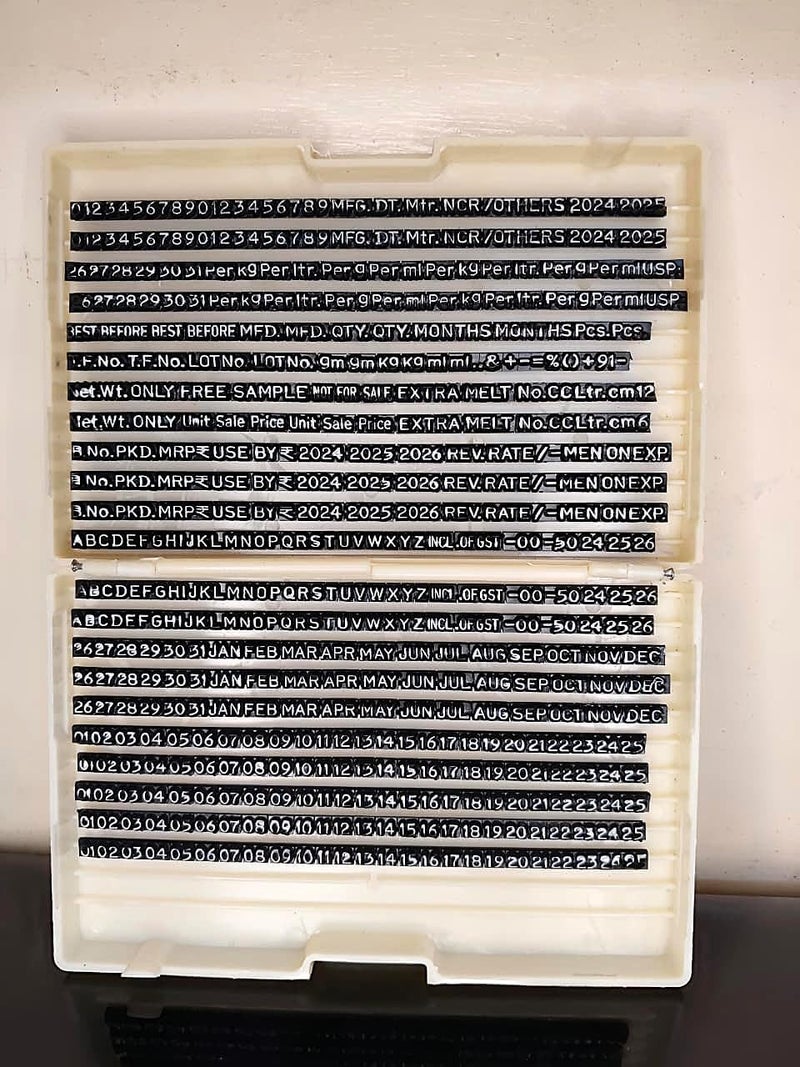 01234567890123456789MFG.DT.Mtr.NCR/OTHERS 2024 2025
01234567890123456789MFG.DT.Mtr.NCR/OTHERS 2024 2025
262728293031Per kg Per ltr. Per g Per ml Per kg Per ltr. Per g Per ml USP.
262728293031Per kg Per ltr. Per g Per ml Per kg Per ltr. Per g Per ml USP.
BEST BEFORE BEST BEFORE MFD. MFD. QTY. QTY. MONTHS MONTHS Pcs. Pcs.
T.F.No. T.F.No. LOTNo. LOTNo. gm gm Kg kg ml ml . . & + - = % () + 91-
Net.Wt. ONLY FREE SAMPLE NOT FOR SALE EXTRA MELT No.CCLtr.cm12
Net.Wt. ONLY Unit Sale Price Unit Sale Price EXTRA MELT No.CCLtr.cm6
B.No.PKD.MRP₹ USE BY ₹ 2024 2025 2026 REV.RATE/-MENONEXP.
B.No.PKD.MRP₹ USE BY ₹ 2024 2025 2026 REV.RATE/-MENONEXP.
B.No.PKD.MRP₹ USE BY ₹ 2024 2025 2026 REV.RATE/-MENONEXP.
ABCDEFGHIJKLMNOPQRSTUVWXYZ INCL.OF GST -00-50 24 25 26
ABCDEFGHIJKLMNOPQRSTUVWXYZ INCL.OF GST -00-50 24 25 26
ABCDEFGHIJKLMNOPQRSTUVWXYZ INCL.OF GST -00-50 24 25 26
26 27 28 29 30 31 JAN FEB MAR APR MAY JUN JUL AUG SEP OCT NOV DEC
26 27 28 29 30 31 JAN FEB MAR APR MAY JUN JUL AUG SEP OCT NOV DEC
26 27 28 29 30 31 JAN FEB MAR APR MAY JUN JUL AUG SEP OCT NOV DEC
01 02 03 04 05 06 07 08 09 10 11 12 13 14 15 16 17 18 19 20 21 22 23 24 25
01 02 03 04 05 06 07 08 09 10 11 12 13 14 15 16 17 18 19 20 21 22 23 24 25
01 02 03 04 05 06 07 08 09 10 11 12 13 14 15 16 17 18 19 20 21 22 23 24 25
01 02 03 04 05 06 07 08 09 10 11 12 13 14 15 16 17 18 19 20 21 22 23 24 25
01 02 03 04 05 06 07 08 09 10 11 12 13 14 15 16 17 18 19 20 21 22 23 24 25